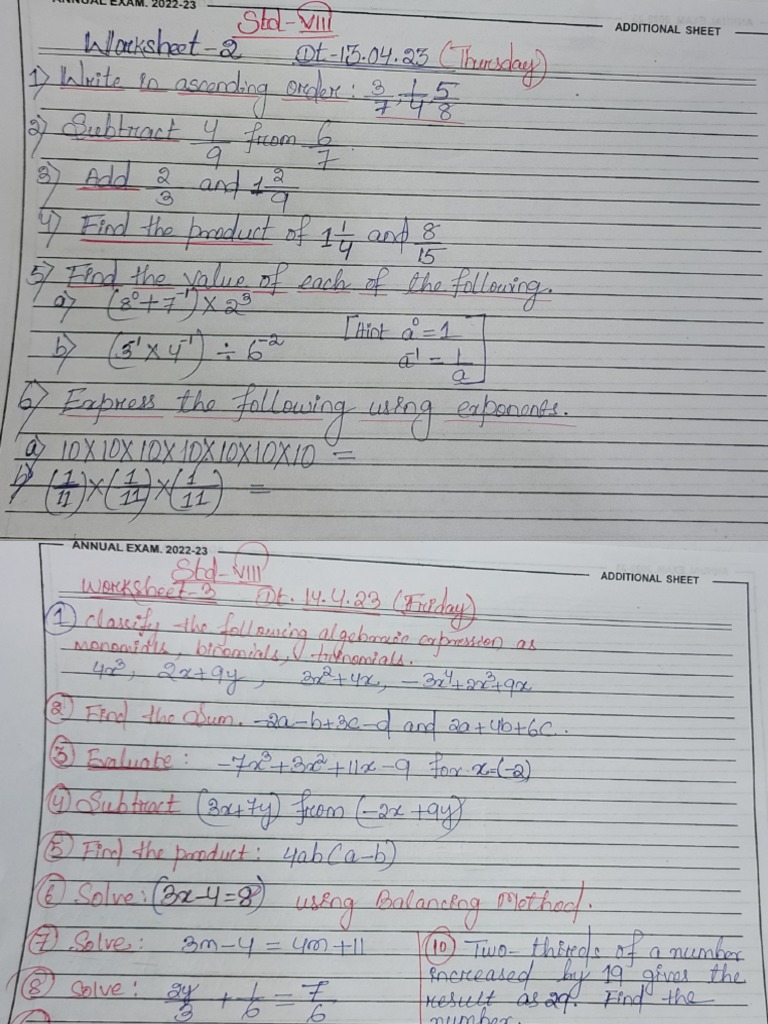 ANNUAL EXAM. 2022-23
Std-VIII
ADDITIONAL SHEET
Worksheet-2 Dt-13.04.23 (Thursday)
1) Write in ascending order: 3/7, 1/4, 5/8
2) Subtract 4/9 from 6/7.
3) Add 2/3 and 1 2/9
4) Find the product of 1 1/4 and 8/15
5) Find the value of each of the following.
a) (8⁰+7⁻¹)×2³
[Hint a⁰=1
b) (3⁻¹×4⁻¹)÷6⁻²
a⁻¹=1/a]
6) Express the following using exponents.
a) 10×10×10×10×10×10×10 =
b) (1/11)×(1/11)×(1/11) =
ANNUAL EXAM. 2022-23
Std-VIII
ADDITIONAL SHEET
Worksheet-3 Dt. 14.4.23 (Friday)
1 Classify the following algebraic expression as
monomials, binomials, trinomials.
4x³, 2x+9y, 3x²+4x, -3x⁴+2x³+9x
2 Find the Sum. -2a-b+3c-d and 2a+4b+6c.
3 Evaluate: -7x³+3x²+11x-9 for x=(-2)
4 Subtract (3x+7y) from (-2x+9y)
5 Find the product: 4ab(a-b)
6 Solve: (3x-4=8) using Balancing Method.
7 Solve: 3m-4=4m+11
8 Solve: 2y/3 + 1/6 = 7/6
10 Two-thirds of a number
increased by 19 gives the
result as 29. Find the
number.